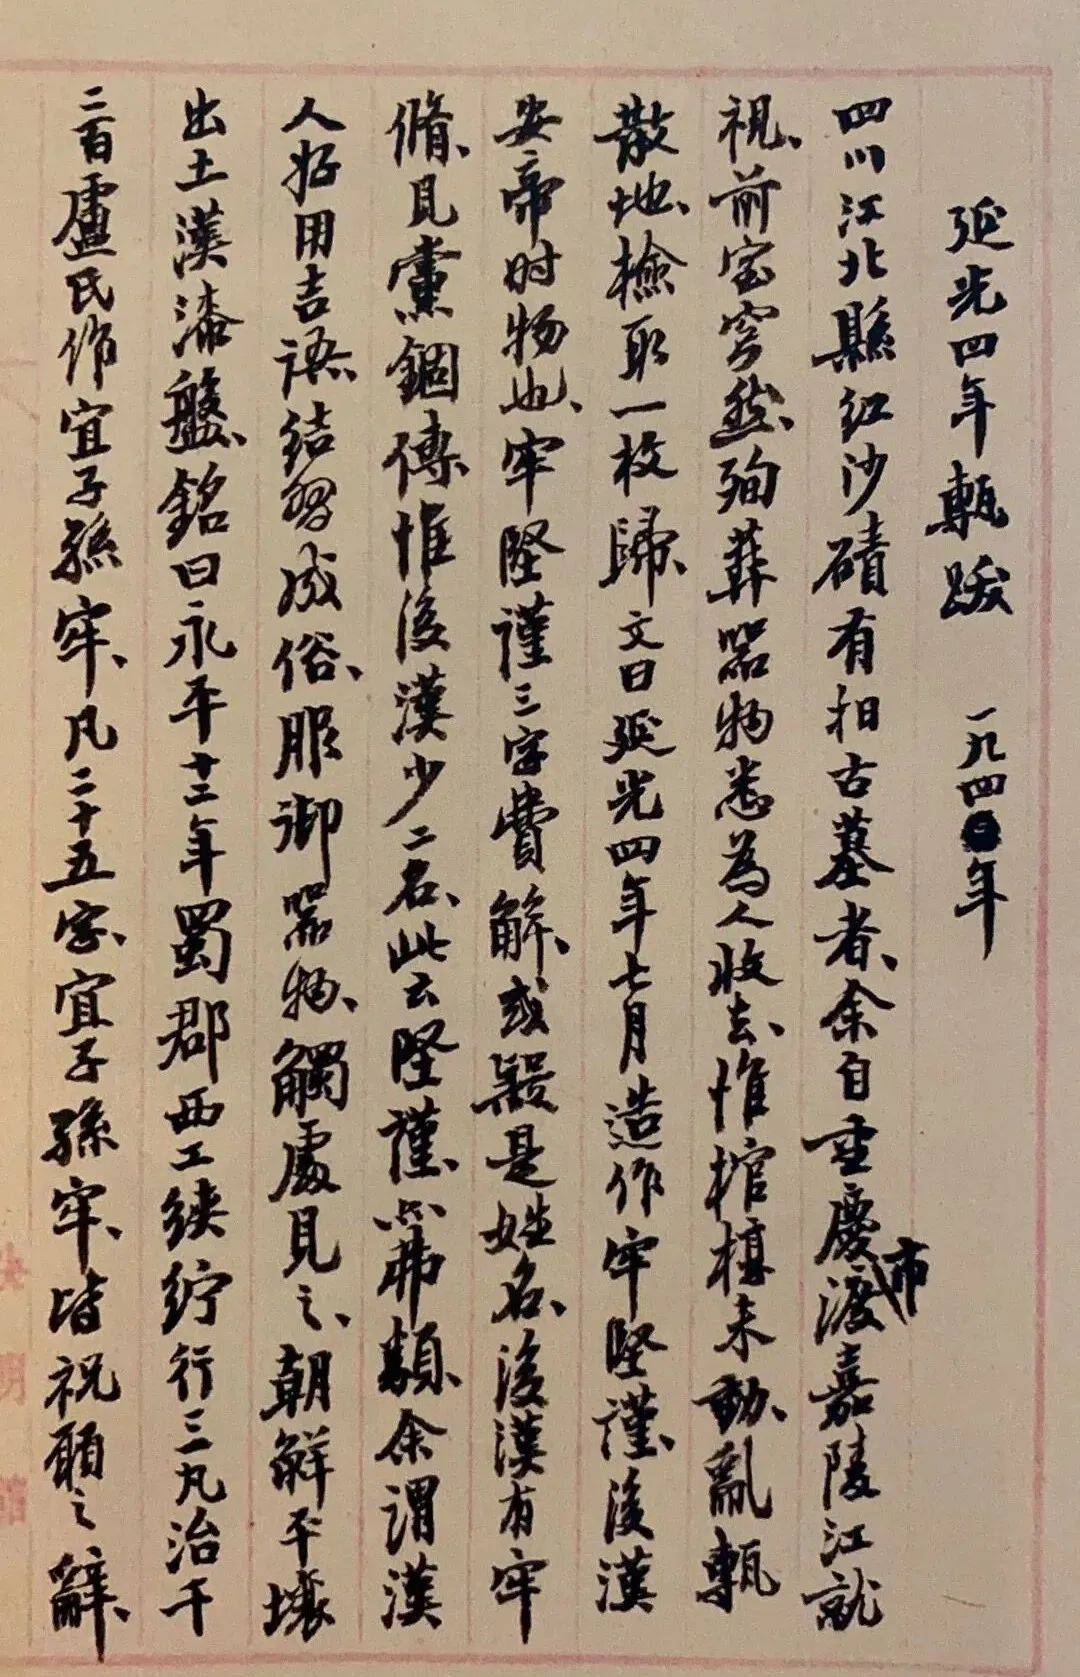 延光四年甎跋 一九四〇年
四川江北縣紅沙磧有掘古墓者、余自重慶市渡嘉陵江就
視、前室穿然、殉葬器物悉為人收去、惟棺椁未動、亂甎
散地、檢取一枚歸、文曰延光四年七月造作牢堅謹、後漢
安帝时物也、牢堅謹三字費解、或疑是姓名、後漢有牢
脩、見黨錮傳、惟後漢少二名、此云堅謹、亦弗類、余謂漢
人好用吉語、結習成俗、服御器物、觸處見之、朝鮮平壤
出土漢漆盤、銘曰永平十二年蜀郡西工緓紵行三丸治千
二百盧氏作宜子孫牢、凡二十五字、宜子孫牢、皆祝願之辭、